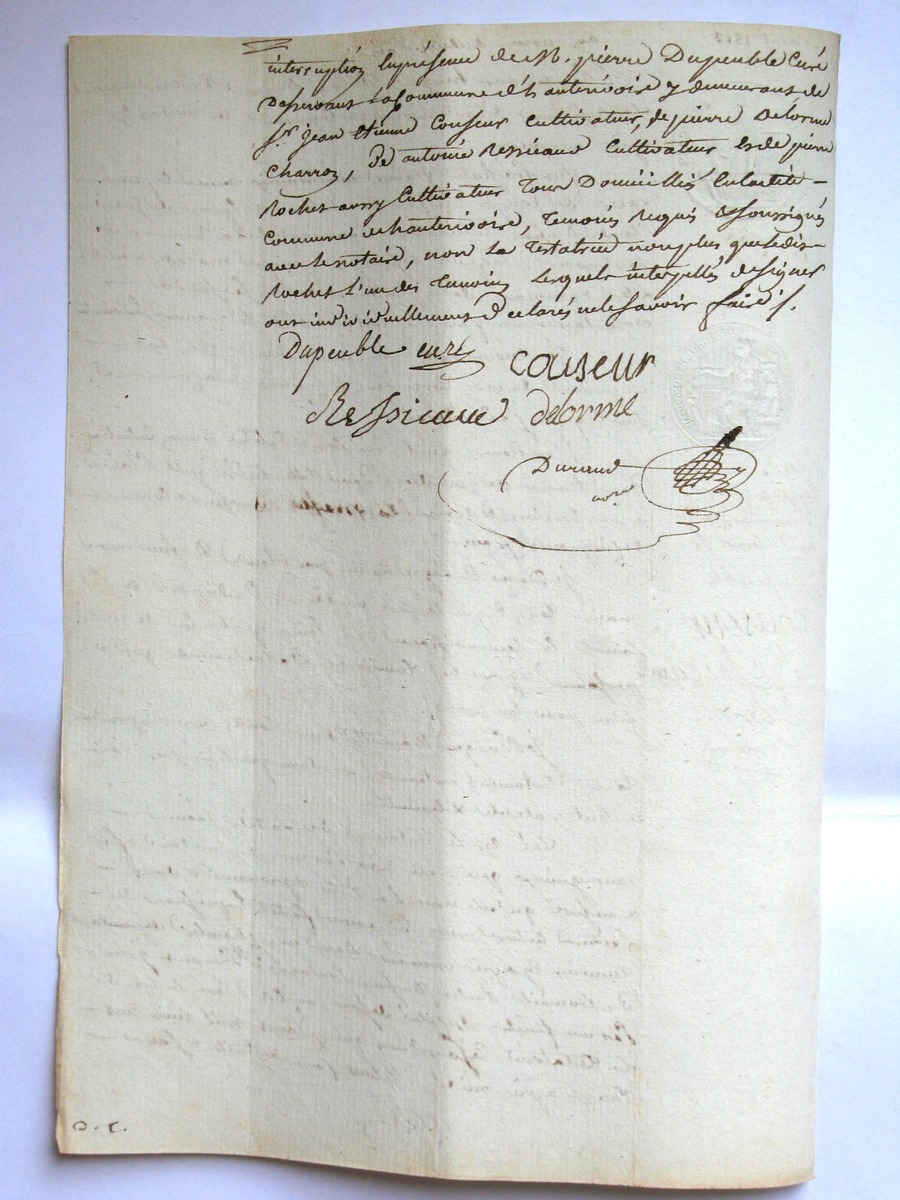 interruption En présence de M. pierre Dupeuble Curé
Desservant La Commune d'hauterivoire y demeurant de
Sr. Jean Etienne Couseur Cultivateur, de pierre Delorme
Charron, De antoine Ressicaud Cultivateur et de pierre
Rochet aussy Cultivateur Tous Domicilliés En la ditte
Commune d'hauterivoire, Temoins Requis & soussignés
avec le notaire, non La Testatrice non plus que le dit
Rochet L'un des Temoins Lesquels interpellés de signer
ont individuellement déclarés ne le Savoir faire /.
Dupeuble curé
couseur
Ressicaud
delorme
Durand
nore